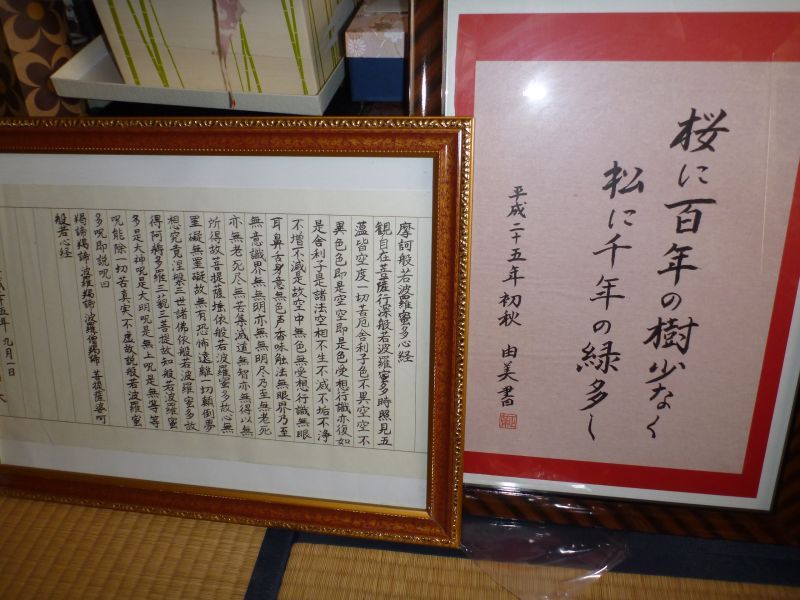 桜に百年の樹少なく
松に千年の緑多し
平成二十五年 初秋 由美書
摩訶般若波羅蜜多心経
観自在菩薩行深般若波羅蜜多時照見五
蘊皆空度一切苦厄舎利子色不異空空不
異色色即是空空即是色受想行識亦復如
是舎利子是諸法空相不生不滅不垢不浄
不増不減是故空中無色無受想行識無眼
耳鼻舌身意無色声香味触法無眼界乃至
無意識界無無明亦無無明尽乃至無老死
亦無老死尽無苦集滅道無智亦無得以無
所得故菩提薩埵依般若波羅蜜多故心無
罣礙無罣礙故無有恐怖遠離一切顛倒夢
想究竟涅槃三世諸佛依般若波羅蜜多故
得阿耨多羅三藐三菩提故知般若波羅蜜
多是大神呪是大明呪是無上呪是無等等
呪能除一切苦真実不虚故説般若波羅蜜
多呪即説呪曰
羯諦羯諦 波羅羯諦 波羅僧羯諦 菩提薩婆訶
般若心経
五年 九月一日